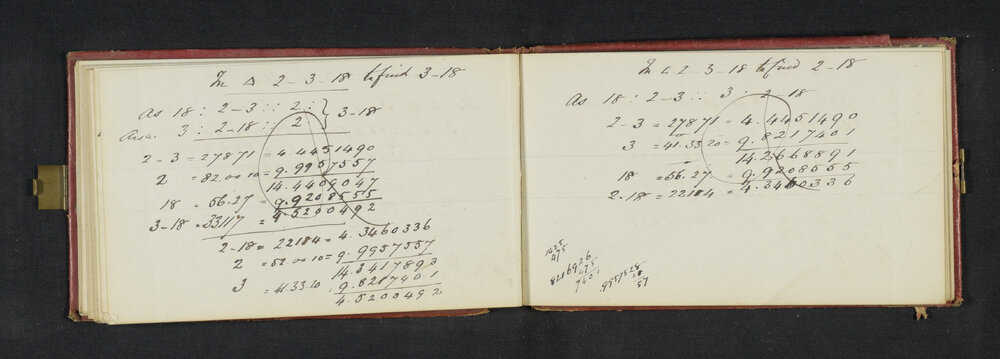 In △ 2-3-18 to find 3-18
As 18 : 2-3 :: 2 : } 3-18
3 : 2-18 :: 2
2-3 = 27871 = 4.4451490
2 = 82.00 10 = 9.9957557
14.4409047
18 = 56.27 = 9.9208555
3-18 = 33117 = 4.5200492
2-18 = 22184 = 4.3460336
2 = 82.00 10 = 9.9957557
14.3417893
3 = 41.33.20 = 9.8217401
4.5200492
In △ 2-3-18 to find 2-18
As 18 : 2-3 :: 3 : 2-18
2-3 = 27871 = 4.4451490
3 = 41.33.20 = 9.8217401
14.2668891
18 = 56.27 = 9.9208555
2-18 = 22184 = 4.3460336
1425
475
8216926
475
7401